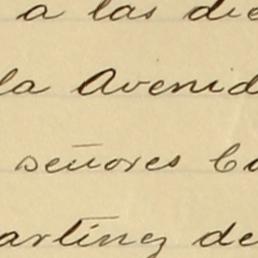 a las die
la Avenid
señores Cu
artinez de